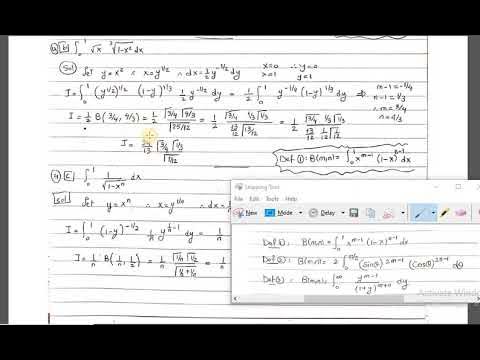 ④ b) ∫₀¹ √x ³√(1-x²) dx
Sol) let y=x² ∴ x=y^(1/2) ∴ dx=½ y^(-1/2) dy x=0 ∴ y=0
x=1 y=1
I=∫₀¹ (y^(1/2))^(1/2) (1-y)^(1/3) ½ y^(-1/2) dy = ½ ∫₀¹ y^(-1/4) (1-y)^(1/3) dy ⇒ m-1=-1/4
⇒ n-1=1/3
I = ½ B(3/4, 4/3) = ½ Γ(3/4) Γ(4/3) / Γ(25/12) = ½ Γ(3/4) 1/3 Γ(1/3) / (13/12 Γ(13/12)) = ½ Γ(3/4) 1/3 Γ(1/3) / (13/12 1/12 Γ(1/12))
n=4/3
I = 24/13 Γ(3/4) Γ(1/3) / Γ(1/12)
Def ①: B(m,n)= ∫₀¹ x^(m-1) (1-x)^(n-1) dx
④ c) ∫₀¹ 1/√(1-xⁿ) dx
Sol) let y=xⁿ ∴ x=y^(1/n) ∴ dx=
I=∫₀¹ (1-y)^(-1/2) 1/n y^(1/n-1) dy = 1/n
I= 1/n B(1/n, 1/2) = 1/n Γ(1/n) Γ(1/2) / Γ(1/n+1/2) = 1/n
Snipping Tool
New Mode Delay
Def ①: B(m,n)= ∫₀¹ x^(m-1) (1-x)^(n-1) dx
Def ②: B(m,n)= 2 ∫₀^(π/2) (Sinθ)^(2m-1) (Cosθ)^(2n-1) dθ
Def ③: B(m,n)= ∫₀^∞ y^(m-1) / (1+y)^(m+n) dy
Activate Windo